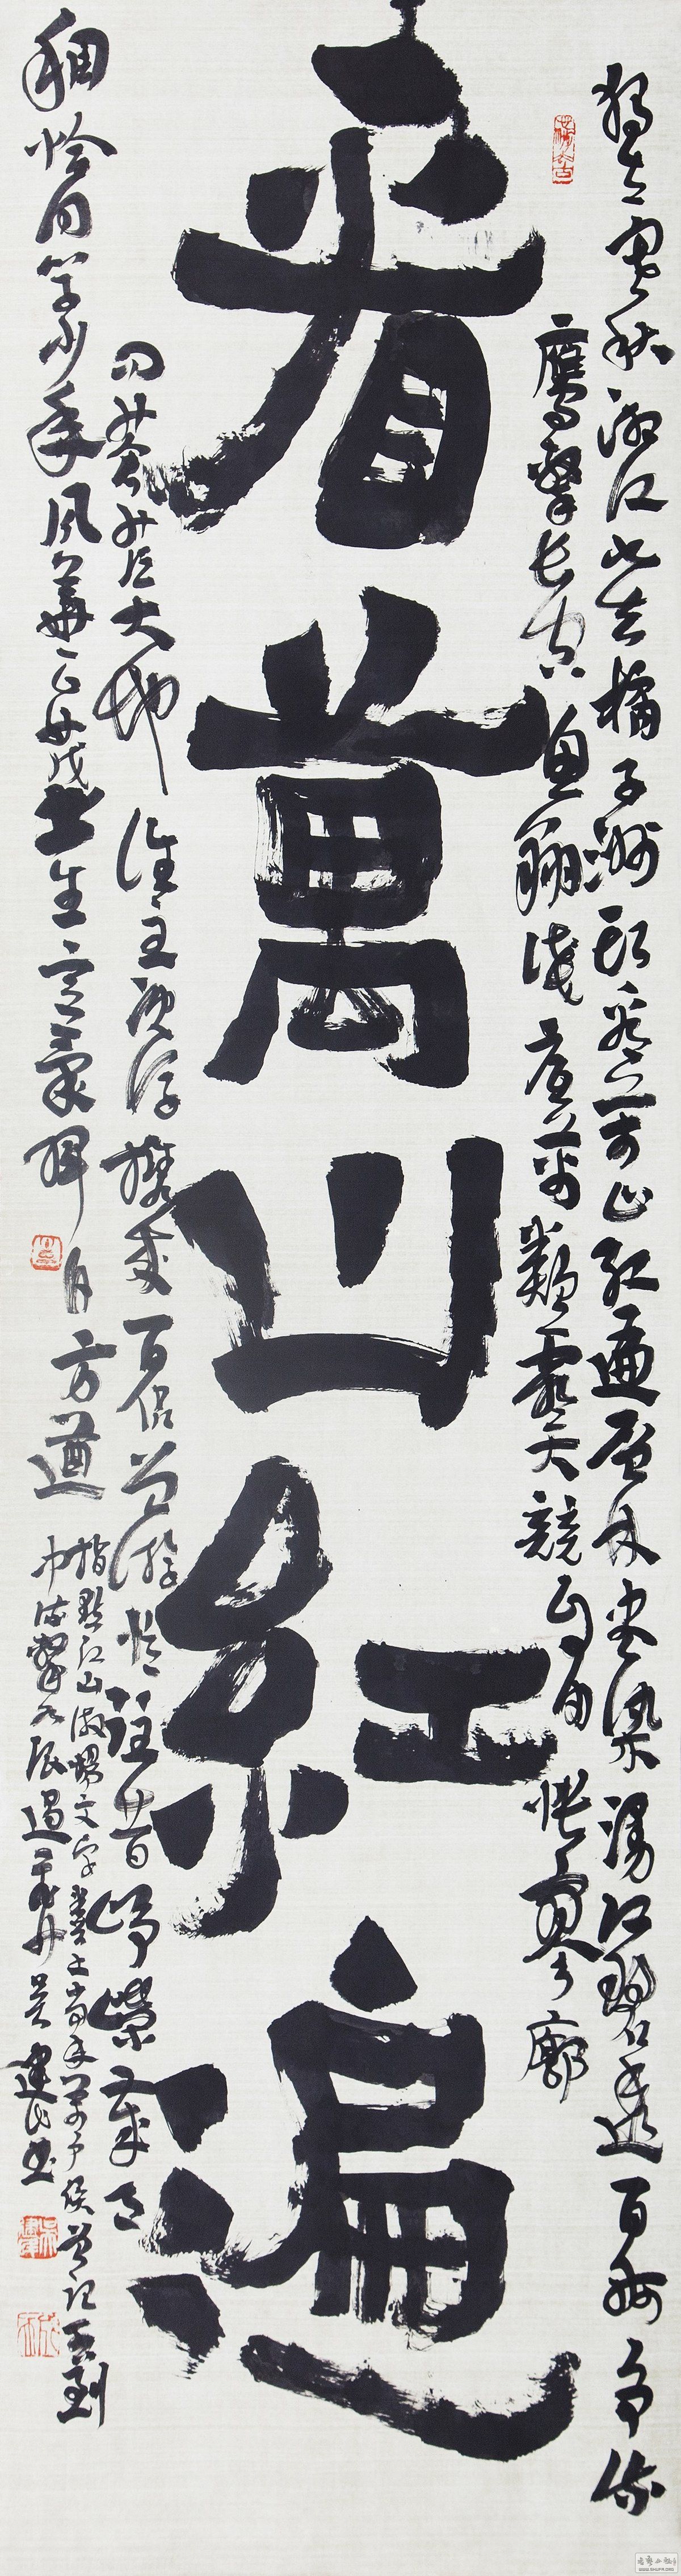 獨立寒秋湘江北去橘子洲頭看萬山紅遍層林盡染漫江碧透百舸爭流
鷹擊長空魚翔淺底萬類霜天競自由悵寥廓
看萬山紅遍
问蒼茫大地誰主沉浮攜來百侣曾游憶往昔崢嶸歲月
稠恰同学少年風華正茂書生意氣揮斥方遒
指點江山激揚文字糞土當年萬户侯曾記否到
中流擊水浪遏飛舟 吴建民书
WWW.SHUFA.ORG